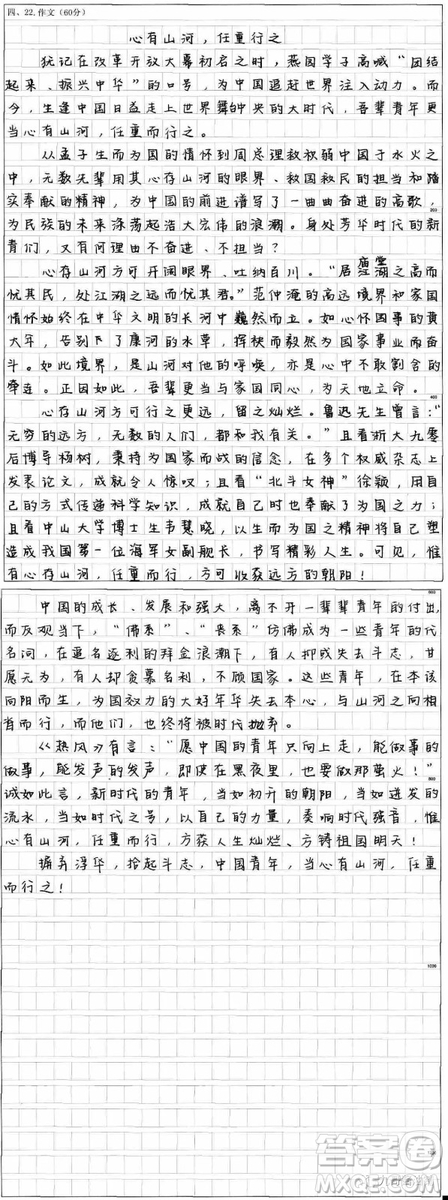 四、22.作文(60分)
心有山河，任重行之
犹记在改革开放大幕初启之时，燕园学子高喊“团结
起来、振兴中华”的口号，为中国追赶世界注入动力。而
今，生逢中国日益走上世界舞台中央的大时代，吾辈青年更
当心有山河，任重而行之。
从孟子生而为国的情怀到周总理救积弱中国于水火之
中，无数先辈用其心存山河的眼界、救国救民的担当和踏
实奉献的精神，为中国的前进谱写了一曲曲奋进的高歌，
为民族的未来涤荡起浩大宏伟的浪潮。身处芳华时代的新
青们，又有何理由不奋进、不担当？
心存山河方可开阔眼界、吐纳百川。“居庙堂之高而
忧其民，处江湖之远而忧其君。”范仲淹的高远境界和家国
情怀始终在中华文明的长河中巍然而立。如心怀国事的黄
大年，告别下了康河的水草，挥袂而毅然为国家事业而奋
斗。如此境界，是山河对他的呼唤，亦是心中不敢割舍的
牵连。正因如此，吾辈更当与家国同心，为天地立命。
心存山河方可行之更远，留之灿烂。鲁迅先生曾言：“
无穷的远方，无数的人们，都和我有关。”且看浙大九零
后博导杨树，秉持为国家而战的信念，在多个权威杂志上
发表论文，成就令人惊叹；且看“北斗女神”徐颖，用自
己的方式传递科学知识，成就自己时也奉献了为国之力；
且看中山大学博士生韦慧晓，以生而为国之精神将自己塑
造成我国第一位海军女副舰长，书写精彩人生。可见，惟
有心存山河，任重而行，方可收获远方的朝阳！
中国的成长、发展和强大，离不开一辈辈青年的付出，
而反观当下，“佛系”、“丧系”仿佛成为一些青年的代
名词，在追名逐利的拜金浪潮下，有人抑或失去斗志，甘
愿无为，有人却贪慕名利，不顾国家。这些青年，在本该
向阳而生，为国效力的大好年华失去本心，与山河之向相
背而行，而他们，也终将被时代抛弃。
《热风》有言：“愿中国的青年只向上走，能做事的
做事，能发声的发声，即使在黑夜里，也要做那萤火！”
诚如此言，新时代的青年，当如初升的朝阳，当如迸发的
流水，当如时代之号，以自己的力量，奏响时代强音，惟
心有山河，任重而行，方获人生灿烂、方铸祖国明天！
摒弃浮华，拾起斗志，中国青年，当心有山河，任重
而行之！
答案圈